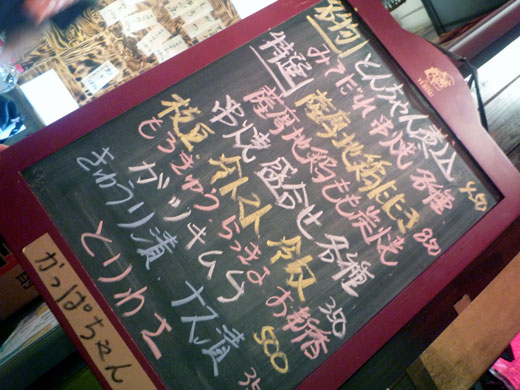 名物 とんちゃん煮込 450
みそだれ串焼 各種
特選 薩摩地鶏たたき 850
薩摩地鶏もも炭焼
串焼 盛合せ 各種
枝豆 ポテト 冷奴 350
もろきゅう らっきょ お新香
ガツキムチ 500
きゅうり漬 ナス漬 35
とりわさ
かっぱちゃん
YEBISU